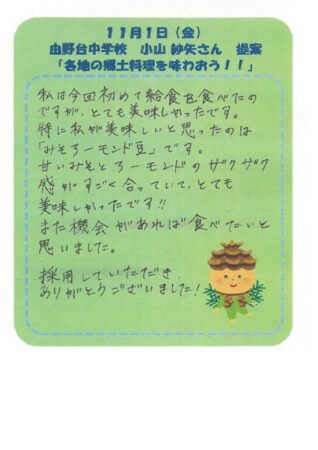 11月1日（金）
由野台中学校　小山 紗矢さん　提案
「各地の郷土料理を味わおう！！」
私は今回初めて給食を食べたの
ですが、とても美味しかったです。
特に私が美味しいと思ったのは
「みそろーモンド豆」です。
甘いみそとろーモンドのザクザク
感がすごく合っていて、とても
美味しかったです!!
また機会があれば食べたいと
思いました。
採用していただき
ありがとうございました!